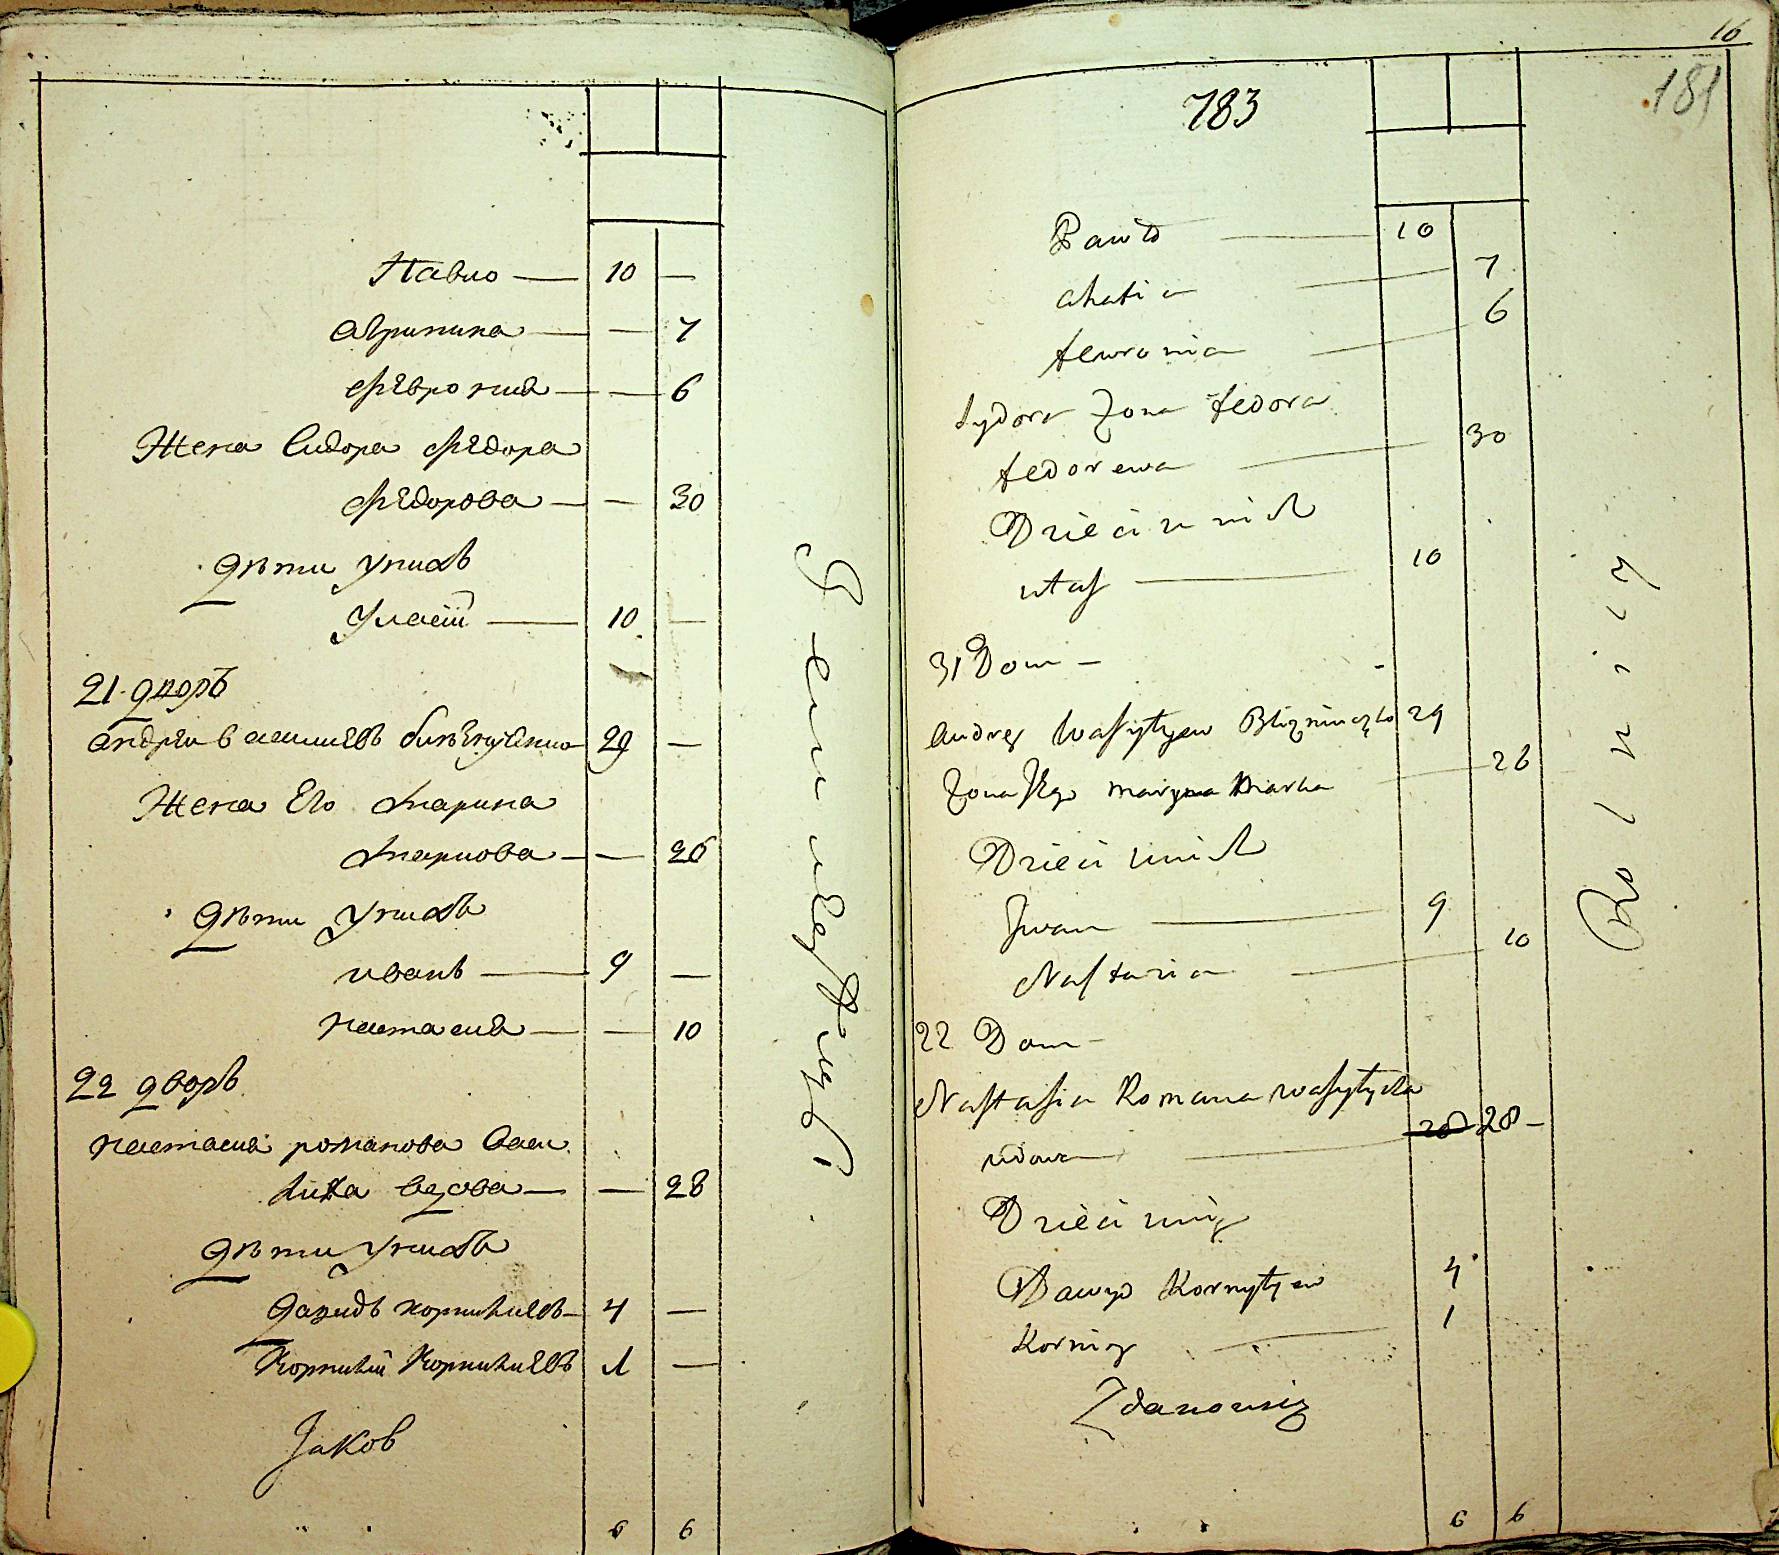 Павло — 10 —
Агрипина — — 7
Феврония — — 6
Жена Сидора Федора
Федорова — — 30
Дѣти у нихъ
Уласій — 10 —
21 дворъ
Андрей Василиевъ 29 —
Жена Его Марина
Маркова — — 26
Дѣти у нихъ
иванъ — 9 —
настасия — — 10
22 дворъ
настасия романова васи
лиха вдова — — 28
Дѣти у нихъ
Давидъ корнилиевъ — 4 —
Корнилій Корнилиевъ 1 —
Яков
6 6
16
181
783
Pawło — 10
Ahafia — 7
fewronia — 6
Sydora Zona fedora
fedorewa — 30
Dzieci u nich
Ułas — 10
31 Dom —
Andrey Wasyłyew 29
Zona Jego Maryna Marka — 26
Dzieci u nich
Jwan — 9
Nastazia — 10
22 Dom —
Nastasia Romana Wasyłycha
udowa — 28 —
Dzieci u niey
Dawyd Kornyłyew 4
Korniey — 1
Zdanowicz
6 6
Rolnicy